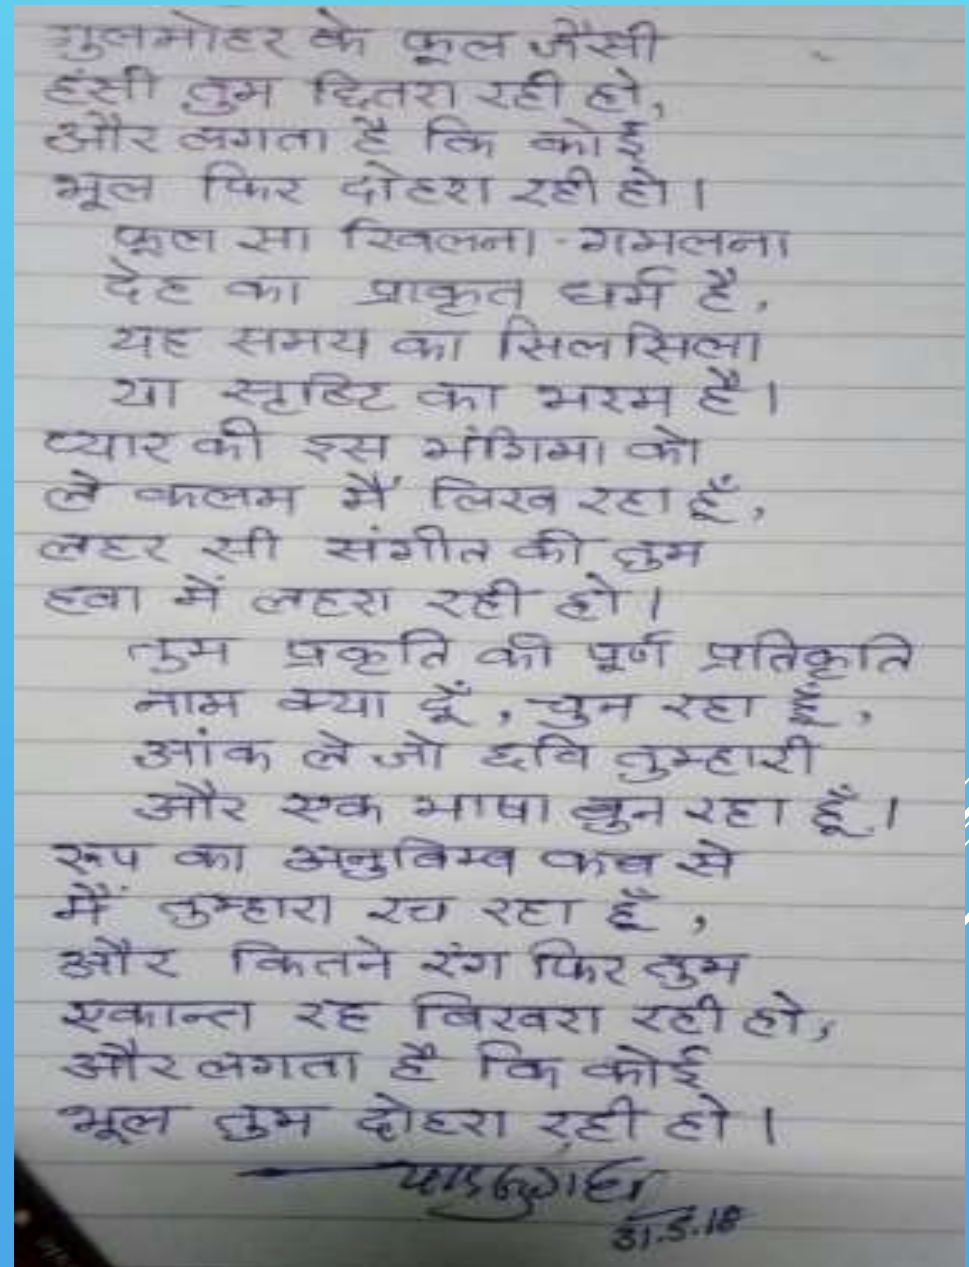 गुलमोहर के फूल जैसी
हंसी तुम छितरा रही हो,
और लगता है कि कोई
भूल फिर दोहरा रही हो।
फूल सा खिलना - गमलना
देह का प्राकृत धर्म है,
यह समय का सिलसिला
या सृष्टि का भरम है।
प्यार की इस भंगिमा को
ले कलम मैं लिख रहा हूँ,
लहर सी संगीत की तुम
हवा में लहरा रही हो।
तुम प्रकृति की पूर्ण प्रतिकृति
नाम क्या दूँ, चुन रहा हूँ,
आंक ले जो छवि तुम्हारी
और एक भाषा बुन रहा हूँ।
रूप का अनुबिम्ब कब से
मैं तुम्हारा रच रहा हूँ,
और कितने रंग फिर तुम
एकान्त रह बिखरा रही हो,
और लगता है कि कोई
भूल तुम दोहरा रही हो।
31.5.18